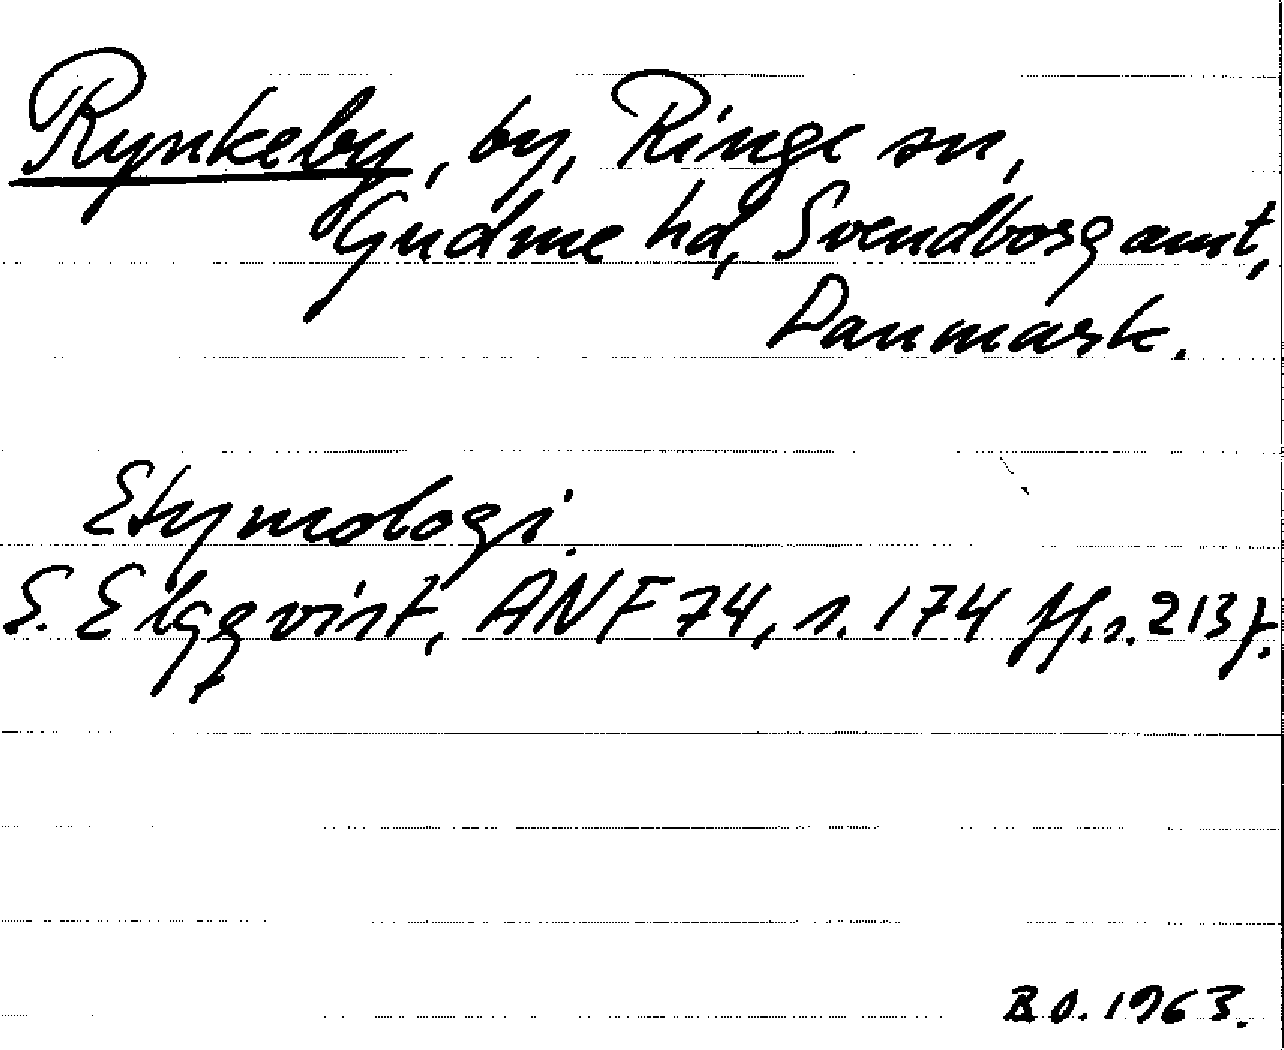 Rynkeby, by, Ringe sn,
Gudme hd, Svendborg amt,
Danmark.
Etymologi.
E. Elgqvist, ANF 74, s. 174 ff, s. 213 f.
B.O. 1963.